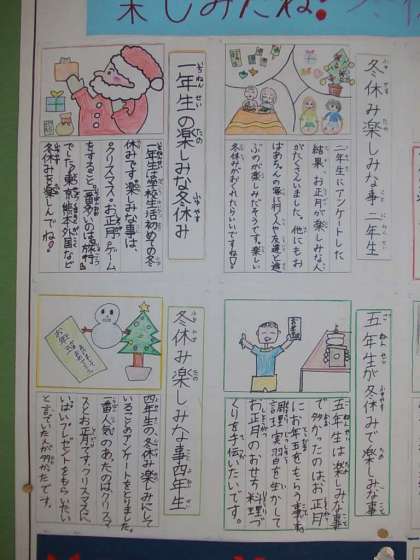 楽しみだね!冬
冬休み楽しみな事 二年生
二年生にアンケートした
結果、お正月が楽しみな人
がたくさんいました。他にもお
ばあちゃんの家に行く人や友達と遊
ぶのが楽しみだそうです。楽しい
冬休みがおくれたらいいですね!
一年生の楽しみな冬休み
一年生は学校生活初めての冬
休みです。楽しみな事は、
クリスマス。お正月。ゲーム
をすること。一番多いのは旅行
でした。東京、熊本、外国など
冬休みを楽しんでね!
五年生が冬休みで楽しみな事
五年生は楽しみな事
で多かったのはお正月
にお年玉をもらう事や
調理実習を生かして
お正月のおせち料理づ
くりを手伝いたいです。
冬休み楽しみな事四年生
四年生の、冬休み楽しみにして
いることのアンケートをとりました。
一番人気のあったのはクリスマ
スとお正月です。クリスマスに
いっぱいプレゼントをもらいたい
と言っていた人が多かったです。